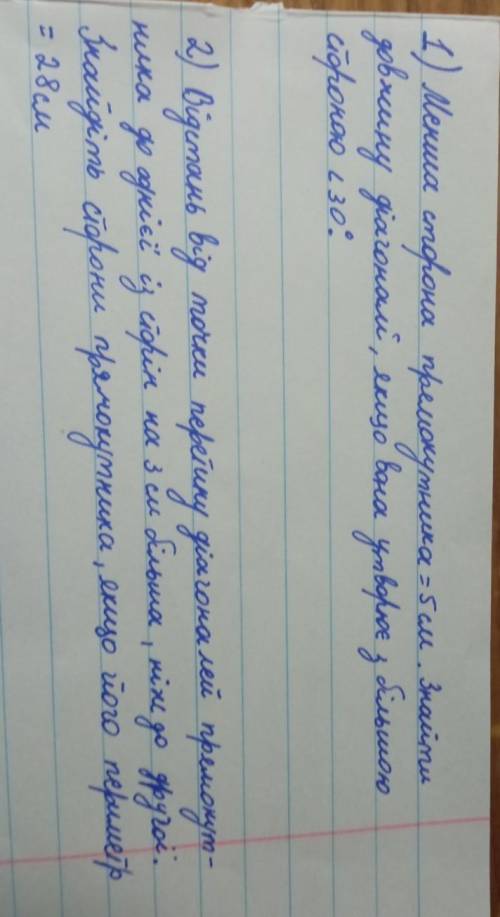 1) Менша сторона премокутника = 5 см. Знайти
довжину діагоналі, якщо вона утворює з більшою
стороною ∠30°.
2) Відстань від точки перетину діагоналей премокут-
ника до однієї із сторін на 3 см більша, ніж до другої.
Знайдіть сторони прямокутника, якщо його периметр
= 28 см